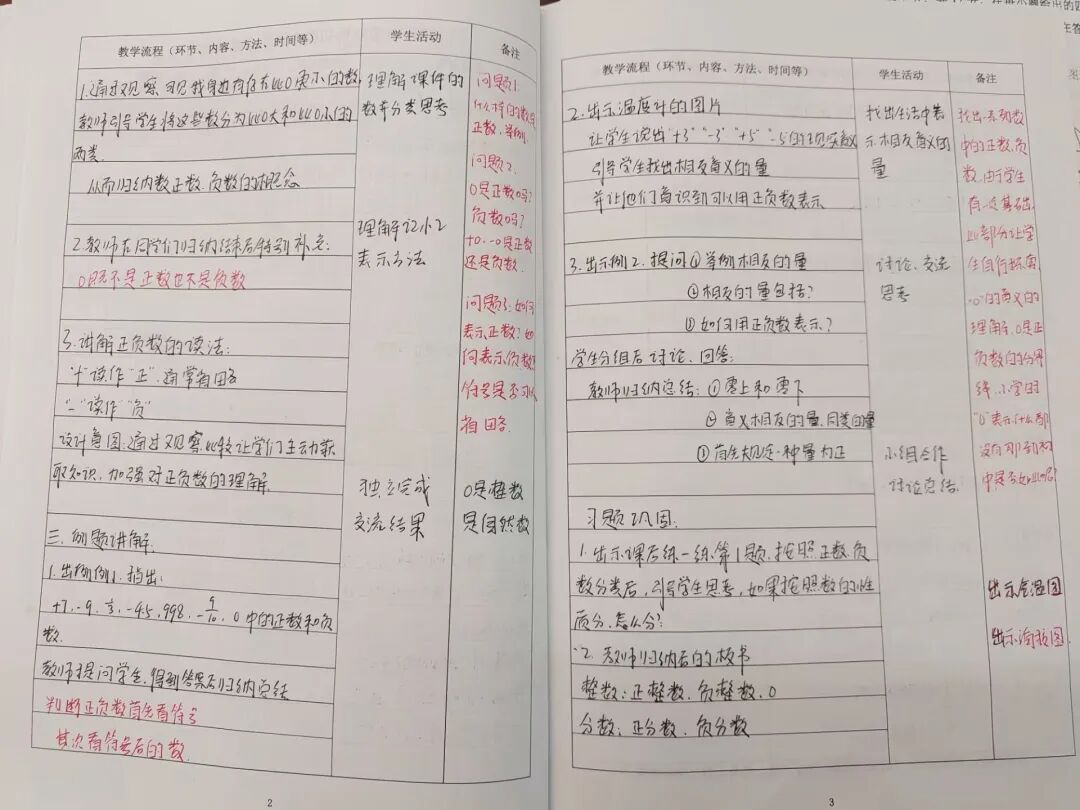 教学流程（环节、内容、方法、时间等）
学生活动
备注
1.通过观察,可见我身边有存在比0更小的数,
教师引导学生将这些数分为比0大和比0小的
两类.
从而归纳数正数.负数的概念
2.教师在同学们归纳结束后特别补充:
0既不是正数也不是负数
3.讲解正负数的读法:
"+"读作"正".通常省略
"-"读作"负"
设计意图:通过观察.比较让学们主动获
取知识.加强对正负数的理解.
三.例题讲解.
1.出示例1.指出:
+7,-9,
,-4.5,998,-9/10,0中的正数和负
数.
教师提问学生.得到答案后归纳总结
判断正负数首先看符号
其次看符号后的数.
理解课件的
数并分类思考
理解记小2
表示方法
独立完成
交流结果
问题1:
什么样的数是
正数.举例.
问题2.
0是正数吗?
负数吗?
+0.-0是正数
还是负数.
问题3:如何
表示正数?如
何表示负数?
符号是否可以
省略.
0是整数
是自然数
2
教学流程（环节、内容、方法、时间等）
学生活动
备注
2.出示温度计的图片
让学生说出"+3""-3""+5""-5"的现实意义
引导学生找出相反意义的量
并让他们意识到可以用正负数表示
3.出示例2.提问①举例相反的量
②相反的量包括?
③如何用正负数表示?
学生分组后讨论.回答:
教师归纳总结:①零上和零下
②意义相反的量.同类的量
③首先规定一种量为正
习题巩固:
1.出示课后练一练第1题.按照正数.负
数分类后,引导学生思考,如果按照数的性
质分.怎么分?
2.教师归纳后的板书
整数:正整数.负整数.0
分数:正分数.负分数
找出生活中表
示相反意义的
量
讨论、交流
思考
小组合作
讨论总结.
找出一系列数
中的正数.负
数.由于学生
有一定基础.
此部分让学
生自行探索
"0"的意义的
理解.0是正
负数的分界
线.小学时
"0"表示什么都
没有.那到初
中是否如此呢?
出示气温图
出示海拔图.
3